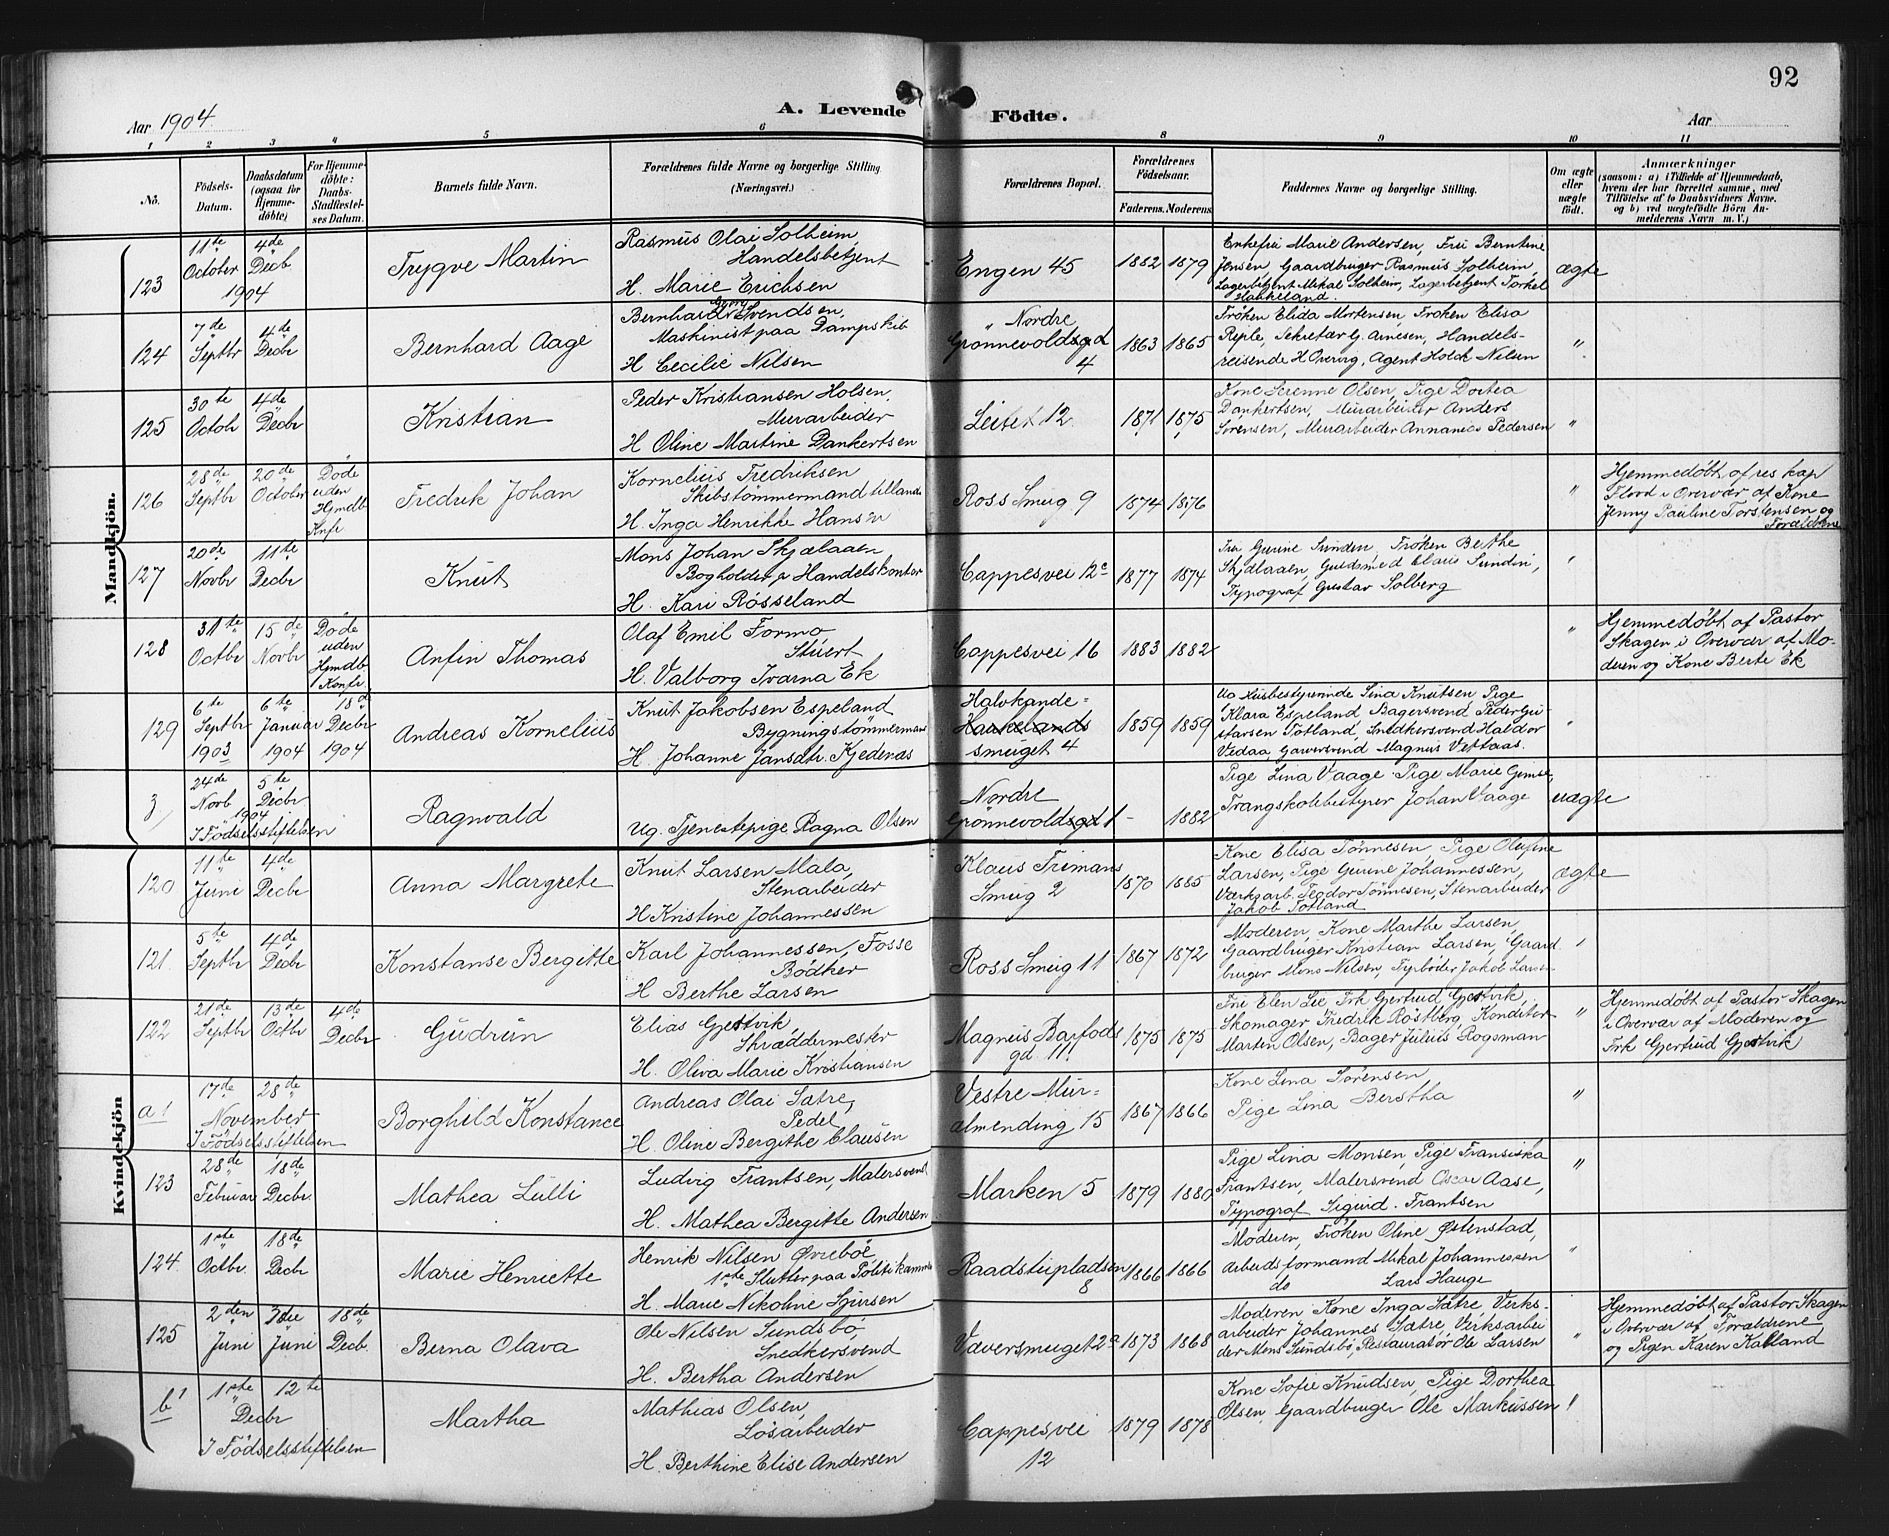 92
Aar 1904.
A. Levende Födte.
Aar
1 2 3 4 5 6 8 9 10 11
No.
Födsels-Datum.
Daabsdatum (ogsaa for Hjemmedöbte)
For Hjemmedöbte: Daabs-Stadfæstelses Datum.
Barnets fulde Navn.
Forældrenes fulde Navne og borgerlige Stilling (Næringsvei.)
Forældrenes Bopæl.
Forældrenes Födselsaar.
Faderens. Moderens.
Faddernes Navne og borgerlige Stilling.
Om ægte eller uægte födt.
Anmærkninger
(saasom: a) i Tilfælde af Hjemmedaab, hvem der har forrettet samme, med Tilföielse af to Daabsvidners Navne. og b) ved uægtefödte Börn Anmelderens Navn m. V.)
Mandkjön.
123 11te October 4de Decb 1904
Trygve Martin
Rasmus Olai Solheim,
Handelsbetjent
H. Marie Erichsen
Engen 45 1882 1879
Enkefru Marie Andersen, Fru Berntine
Jensen, Gaardbruger Rasmus Solheim,
Lagerbetjent Mikal Solheim, Lagerbetjent Torkel
Haukeland.
ægte
124 7de Septbr 4de Decbr
Bernhard Aage
Bernhard Svendsen,
Maskinist paa Dampskib
H Cecilie Nilsen
" Nordre
Grönnevoldsgd
4
1863 1865
Fröken Elida Mortensen Froken Elisa
Reple, Sekretær G. Arnesen, Handels-
reisende H Overvig, Agent Holck Nilsen
"
125 30te Octobr 4de Decbr
Kristian
Peder Kristiansen Holsen,
Murarbeider
H Oline Martine Dankertsen
Leitet 12 1871 1875
Kone Serenne Olsen, Pige Dortea
Dankertsen, Murarbeider Anders
Sörensen, Murarbeider Annanias Pedersen
"
126 28de Septbr 20de October
Döde uden Hjmdb Knfr
Fredrik Johan
Kornelius Fredriksen
Skibstömmermand tillands
H. Inga Henrikke Hansen
Ross Smug 9 1874 1876
"
Hjemmedøbt af res kap
Flood i Overvær af Kone
Jenny Pauline Torstensen og
Forældrene
127 20de Novbr 11te Decbr
Knut
Mons Johan Skjælaaen
Bogholder p Handelskontor
H. Kari Rösseland
Cappesvei 12c 1877 1874
Fru Gurine Sunden, Fröken Berthe
Skjölaaen, Guldsmed Claus Sundin,
Typograf Gustav Solberg
"
128 31te Octbr 15de Novbr
Döde uden Hjmdb Konfr
Anfin Thomas
Olaf Emil Formo,
Stuert
H. Valborg Ivarna Ek
Cappesvei 16 1883 1882
"
Hjemmedøbt af Pastor
Skagen i Overvær af Mo-
deren og Kone Berte Ek
129 6te Septbr 1903 6te Januar 1904 18de Decbr 1904
Andreas Kornelius
Knut Jakobsen Espeland
Bygningstömmermand
H. Johanne Jansdtr. Kjedenæs
Halvkande-
Haukelands
smuget 4
1859 1859
Husbestyrerinde Sina Knutsen Pige
Klara Espeland Bagersvend Peder Gu-
stavsen Totland, Snedkersvend Haldor
Vedaa, Garversvend Magnus Vetlaas.
"
3/ 24de Novb 5te Decbr 1904
I Födselsstiftelsen
Ragnvald
Ug. Tjenestepige Ragna Olsen
Nordre
Grönnevoldsgd 1 - 1882
Pige Lina Vaage Pige Marie Gimse,
Trangskolebestyrer Johan Vaage
uægte
Kvindekjön
120 11te Juni 4de Decbr
Anna Margrete
Knut Larsen Mala,
Stenarbeider
H Kristine Johannessen
Klaus Frimans
Smug 2
1870 1885
Kone Elisa Tönnesen Pige Olufine
Larsen, Pige Gurine Johannessen,
Værksarb. Teodor Tönnesen, Stenarbeider
Jakob Totland
ægte
121. 5te Septbr 4de Decbr
Konstanse Bergitte
Karl Johannessen, Fosse
Bödker
H Berthe Larsen
Ross Smug 11 1867 1872
Moderen, Kone Marthe Larsen,
Gaardbruger Kristian Larsen, Gaard
bruger Mons Nilsen, Fyrböder Jakob Larsen
"
122 21de Septbr 13de Octbr 4de Decbr
Gudrun
Elias Gjestvik,
Skræddermester
H. Oliva Marie Kristiansen
Magnus Barfods
gd 11!
1875 1875
Fru Elen Lie Frk Gjertrud Gjestvik,
Skomager Fredrik Röstberg Konditor
Marten Olsen, Bager Julius Rogsman
"
Hjemmedöbt af Pastor Skagen
i Overvær af Moderen og
Frk Gjertrud Gjestvik
a! 17de 28de November
I Födselsstiftelsen
Borghild Konstance
Andreas Olai Satre,
Pedel
H. Oline Bergithe Clausen
Vestre Mur-
almending 15
1867 1866
Kone Lina Sörensen
Pige Lina Berstha
"
123 28de Februar 18de Decbr.
Mathea Lulli
Ludvig Frantsen, Malersvend
H. Mathea Bergitte Andersen
Marken 5 1879 1880
Pige Lina Monsen, Pige Fransiska
Frantsen, Malersvend Oscar Aase,
Typograf Sigurd. Frantsen
"
124. 1ste Octbr. 18de Decbr
Marie Henriette
Henrik Nilsen Övreböe
1ste Slutter paa Politikammer
H. Marie Nikoline Sjursen
Raadstupladsen
8
1866 1866
Moderen, Fröken Oline Østenstad,
Arbeidsformand Mikal Johannessen
do Lars Hauge
"
125 2den Juni 3die Juni 18de Decb.
Berna Olava
Ole Nilsen Sundsbö,
Snedkersvend
H. Bertha Andersen
Væversmuget 2a 1873 1868
Moderen Kone Inga Sætre, Verks-
arbeider Johannes Sætre Verksarbei
der Mons Sundsbö, Restauratör Ole Larsen
"
Hjemmedøbt af Pastor Skagen
i Overvær af Forældrene
og Pigen Karen Kalland
b! 1ste 12te Decbr
I Födselsstiftelsen
Martha
Mathias Olsen,
Lösarbeider
H. Berthine Elise Andersen
Cappesvei
12
1879 1878
Kone Sofie Knudsen, Pige Dorthea
Olsen, Gaardbruger Ole Markussen
"